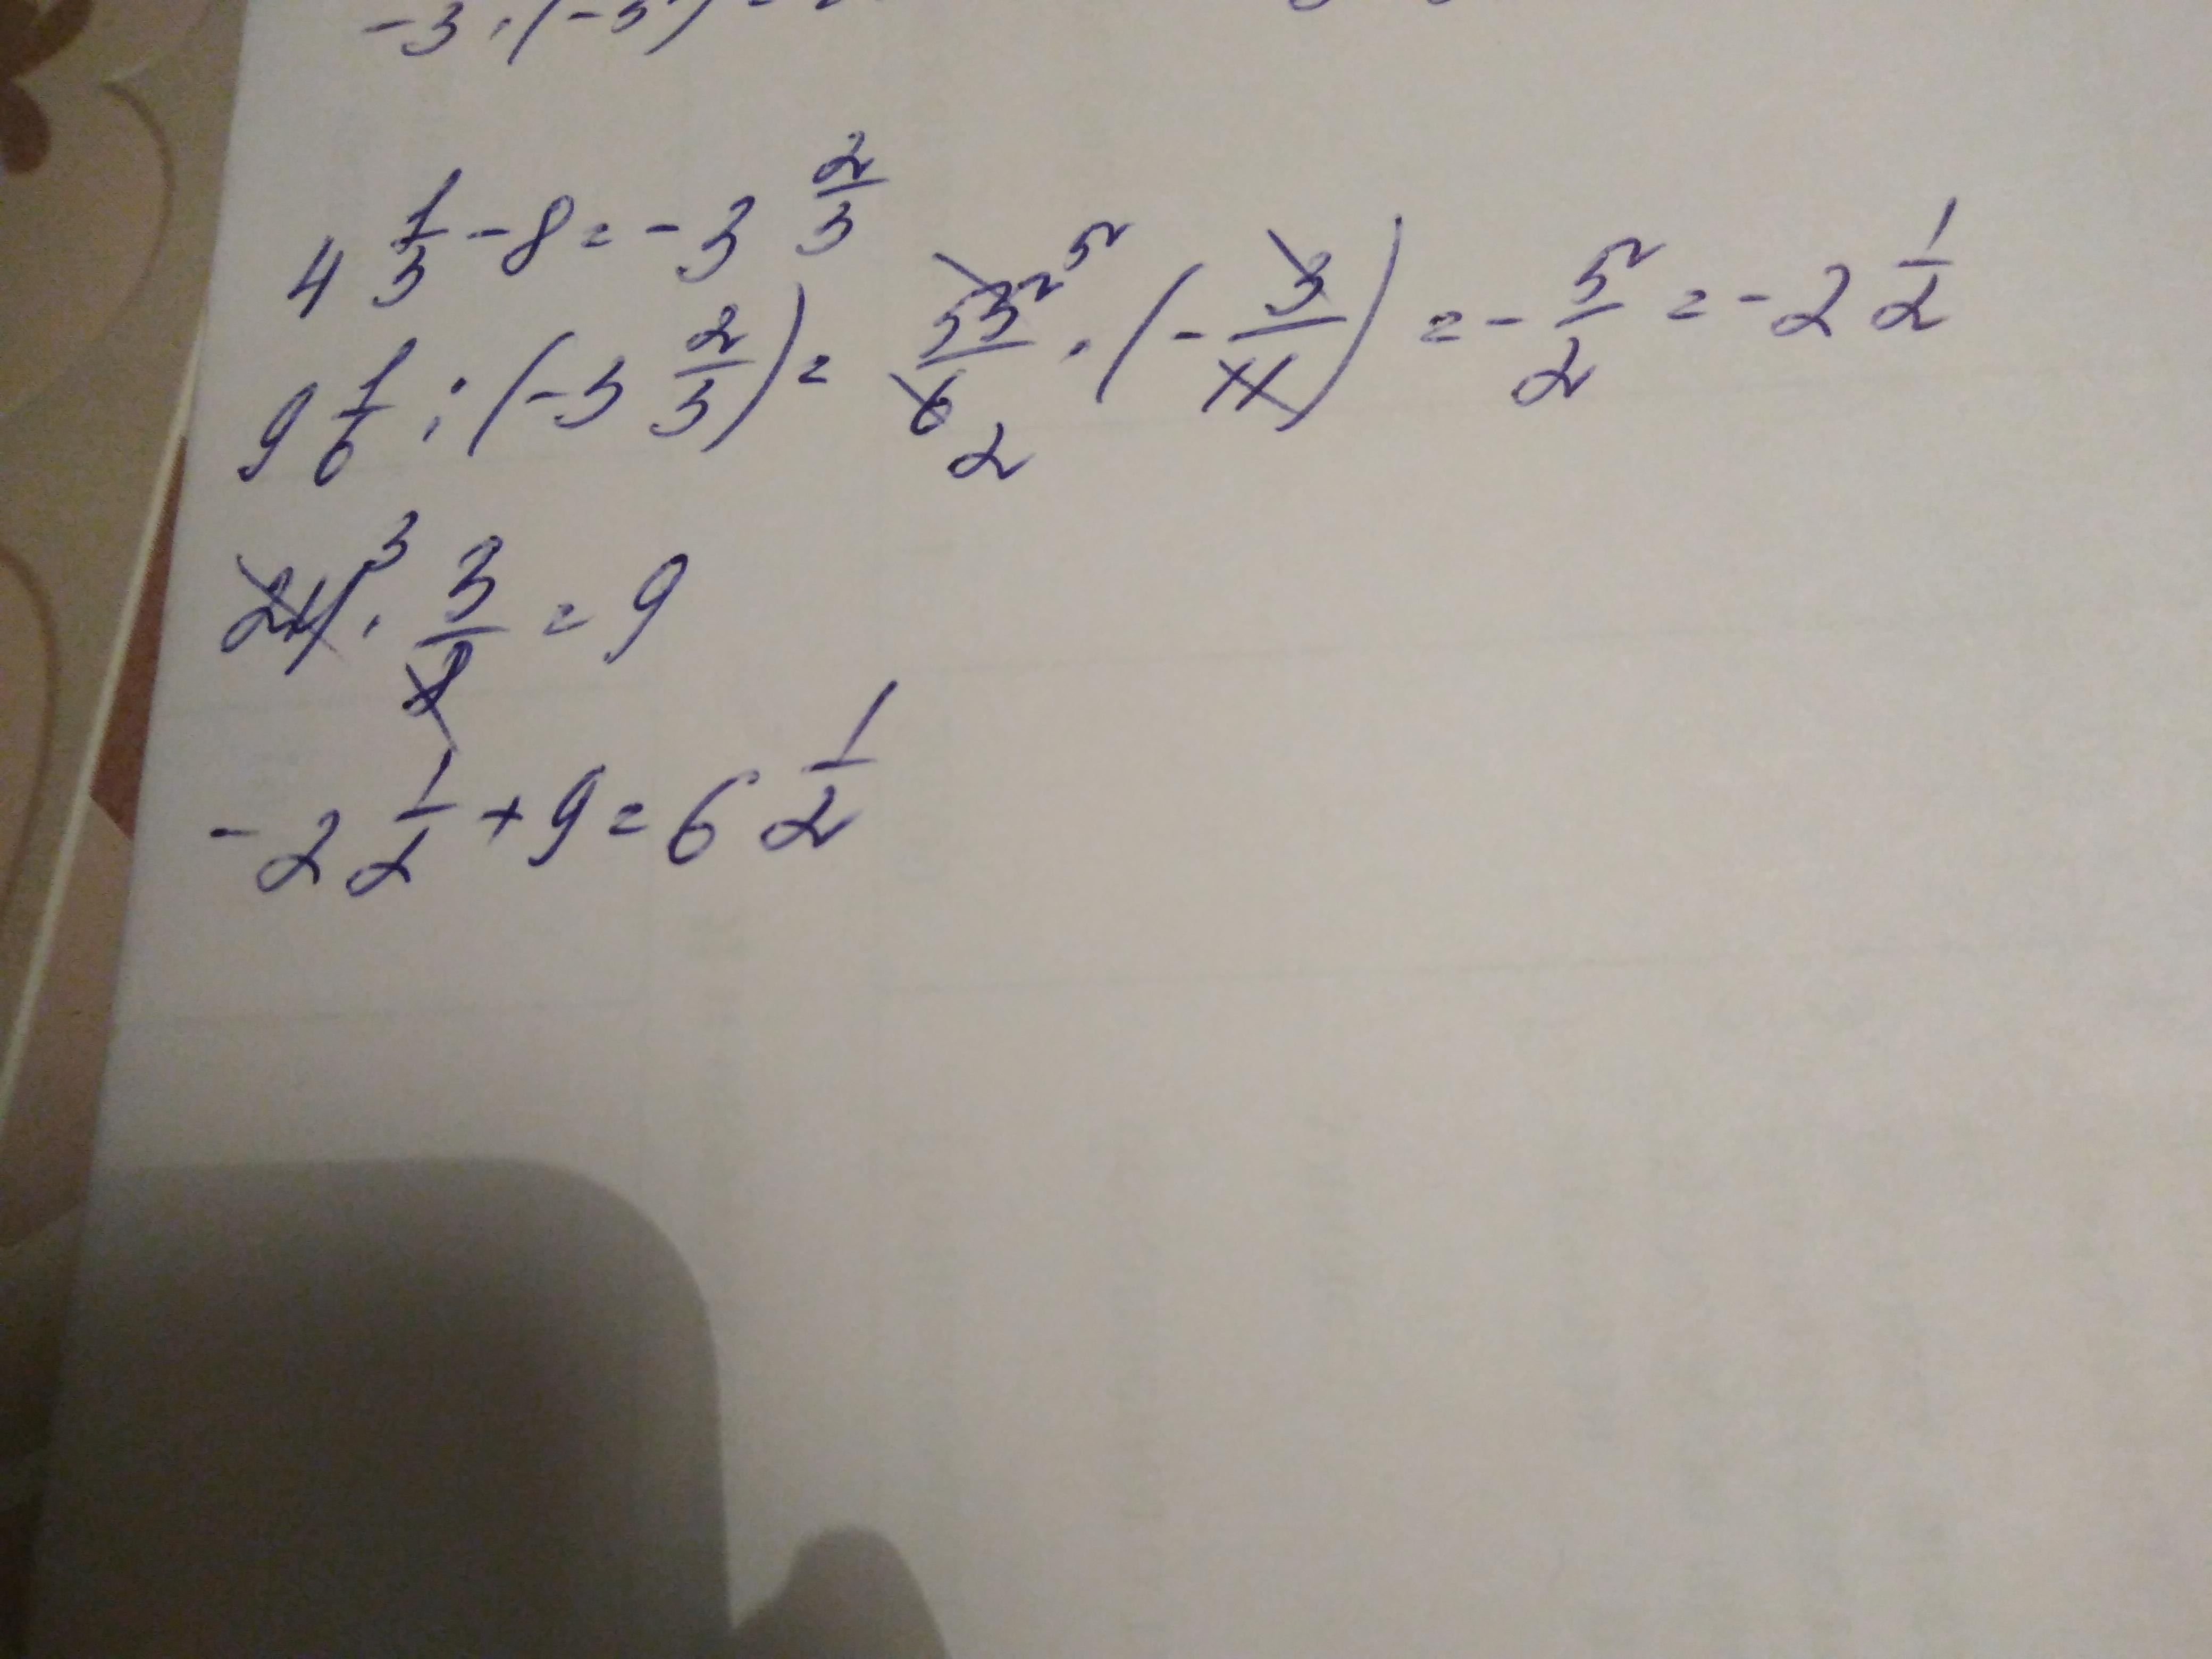 4 1/3 - 8 = -3 2/3
9 1/6 : (-3 2/3) = 55/6 · (-3/11) = -5/2 = -2 1/2
24 · 3/8 = 9
-2 1/2 + 9 = 6 1/2